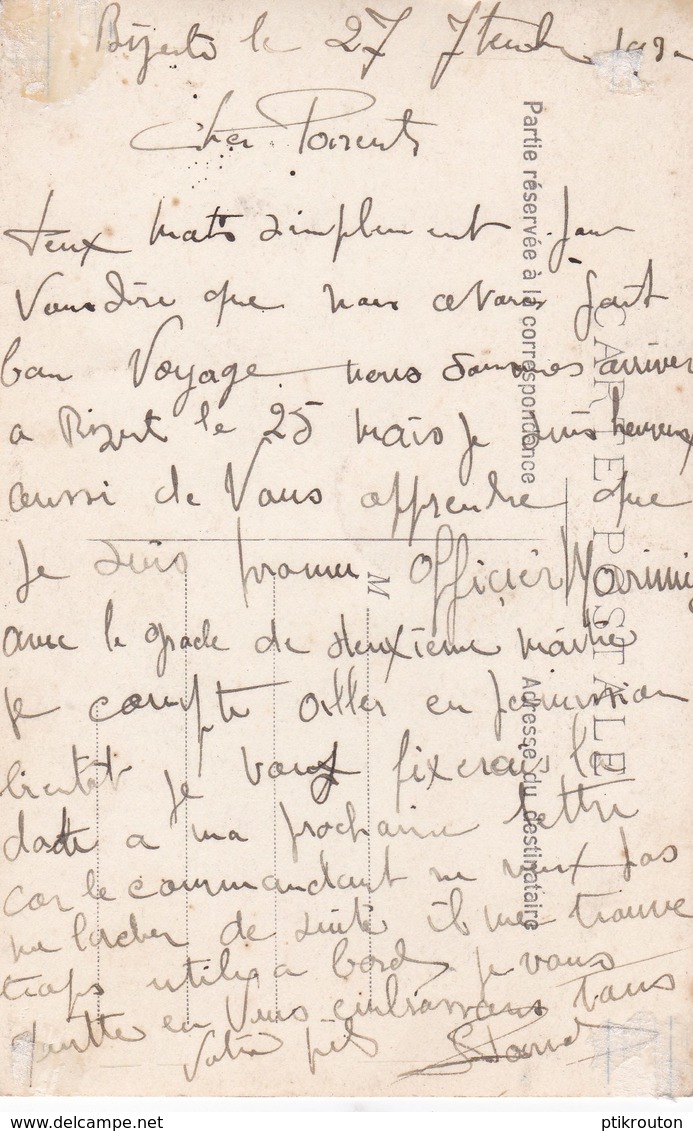 Bizerte le 27 7tembre
Cher Parents
deux mots simplement pour
Vous dire que nous avons fait
bon Voyage nous sommes arriver
a Bizert le 25 mais je suis heureux
aussi de Vous apprendre que
Je suis promu Officier Marinier
avec le grade de deuxième maitre
Je compte aller en permission
bientot je vous fixerai le
date a ma prochaine lettre
car le commandant ne veux pas
me lacher de suite il me trouve
trops utile a bord je vous
quitte en Vous embrassans Tous
Votre fils
CARTE POSTALE
Partie réservée à la correspondance
Adresse du destinataire
M
delcampe.net
ptikrouton